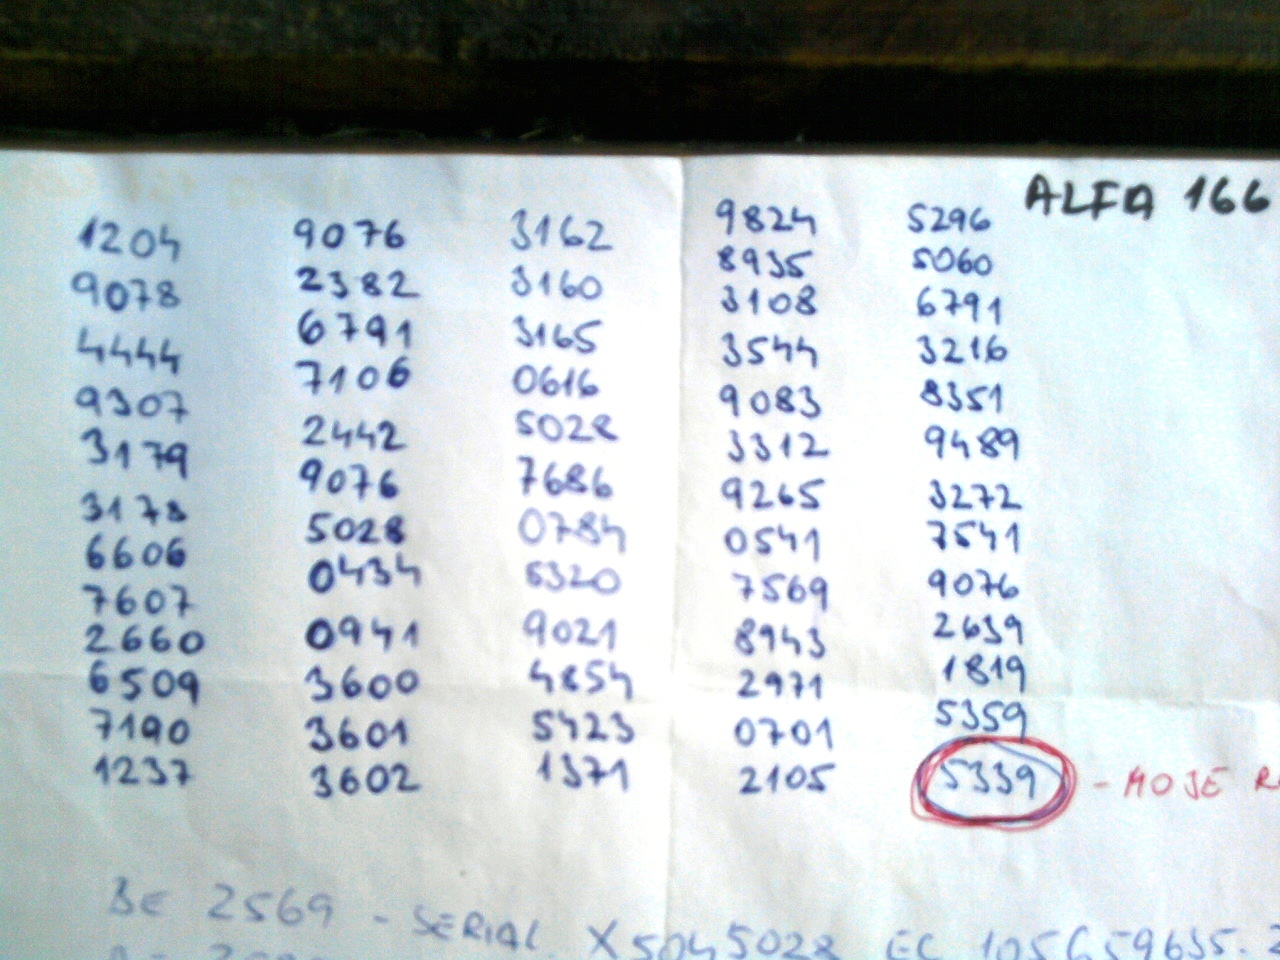 ALFA 166
1204 9076 3162 9824 5296
9078 2382 3160 8935 5060
4444 6791 3165 3108 6791
9307 7106 0616 3544 3216
3179 2442 5028 9083 8351
3178 9076 7686 3312 9489
6606 5028 0784 9265 3272
7607 0434 5320 0541 7541
2660 0941 9021 7569 9076
6509 3600 4854 8943 2639
7190 3601 5423 2971 1819
1237 3602 1371 0701 5359
2105 5339 - MOJE
BE 2569 - SERIAL. X5045028 EC 105659635.